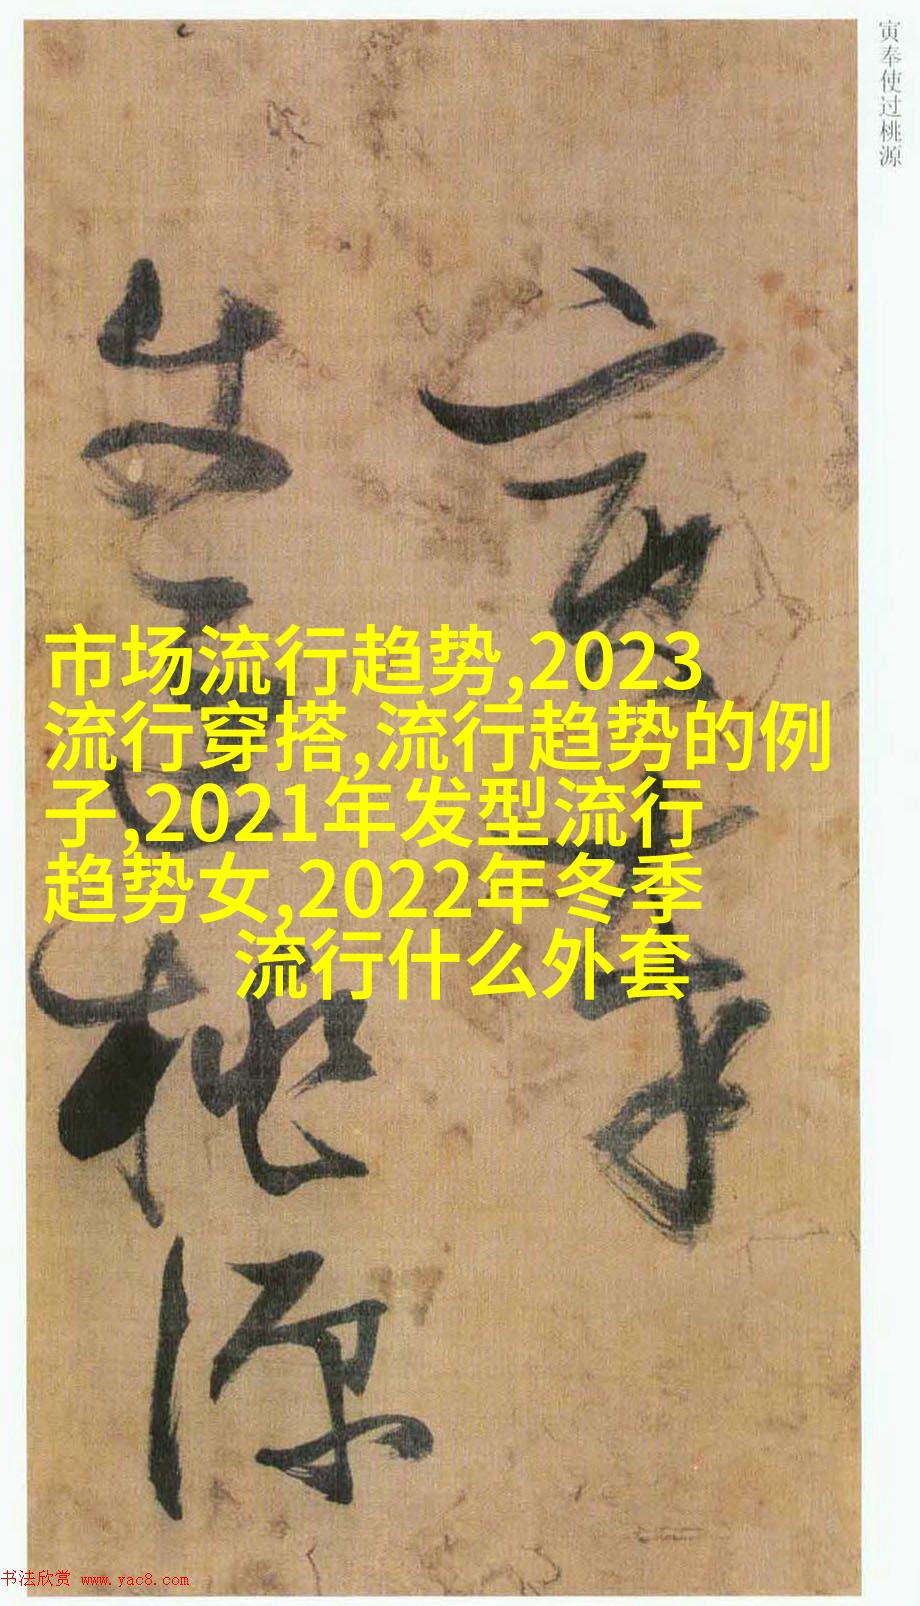 寅奉使过桃源
市场流行趋势,2023
流行穿搭,流行趋势的例
子,2021年发型流行
趋势女,2022年冬季
流行什么外套
寅奉使
过桃源
书法欣赏 www.yac8.com